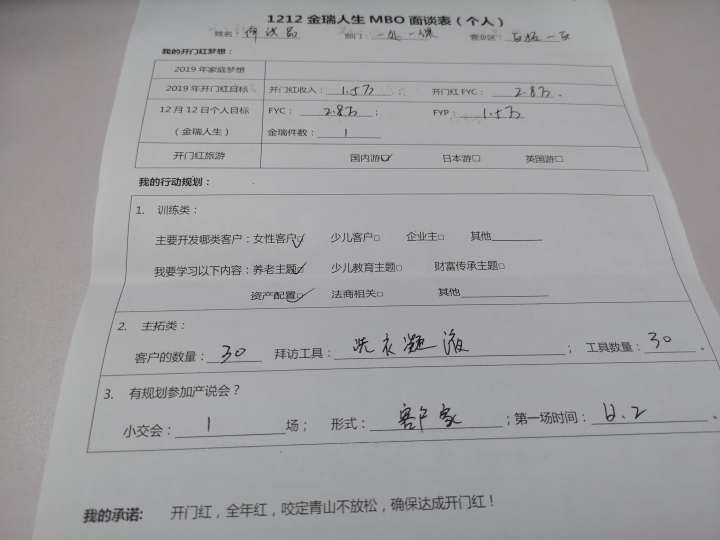 1212金瑞人生MBO面谈表（个人）
姓名： 部门： 一部一课 营业区：
我的开门红梦想：
2019年家庭梦想
2019年开门红目标 开门红收入：1.5万； 开门红FYC： 2.8万.
12月12日个人目标 FYC： 2.8万； FYP： 1.5万
（金瑞人生） 金瑞件数：1
开门红旅游 国内游☑ 日本游□ 英国游□
我的行动规划：
1. 训练类：
主要开发哪类客户：女性客户☑ 少儿客户□ 企业主□ 其他
我要学习以下内容：养老主题☑ 少儿教育主题□ 财富传承主题□
资产配置☑ 法商相关□ 其他
2. 主拓类：
客户的数量：30 拜访工具：洗衣凝液； 工具数量：30。
3. 有规划参加产说会？
小交会：1场； 形式：客户家；第一场时间：12.2。
我的承诺: 开门红，全年红，咬定青山不放松，确保达成开门红！